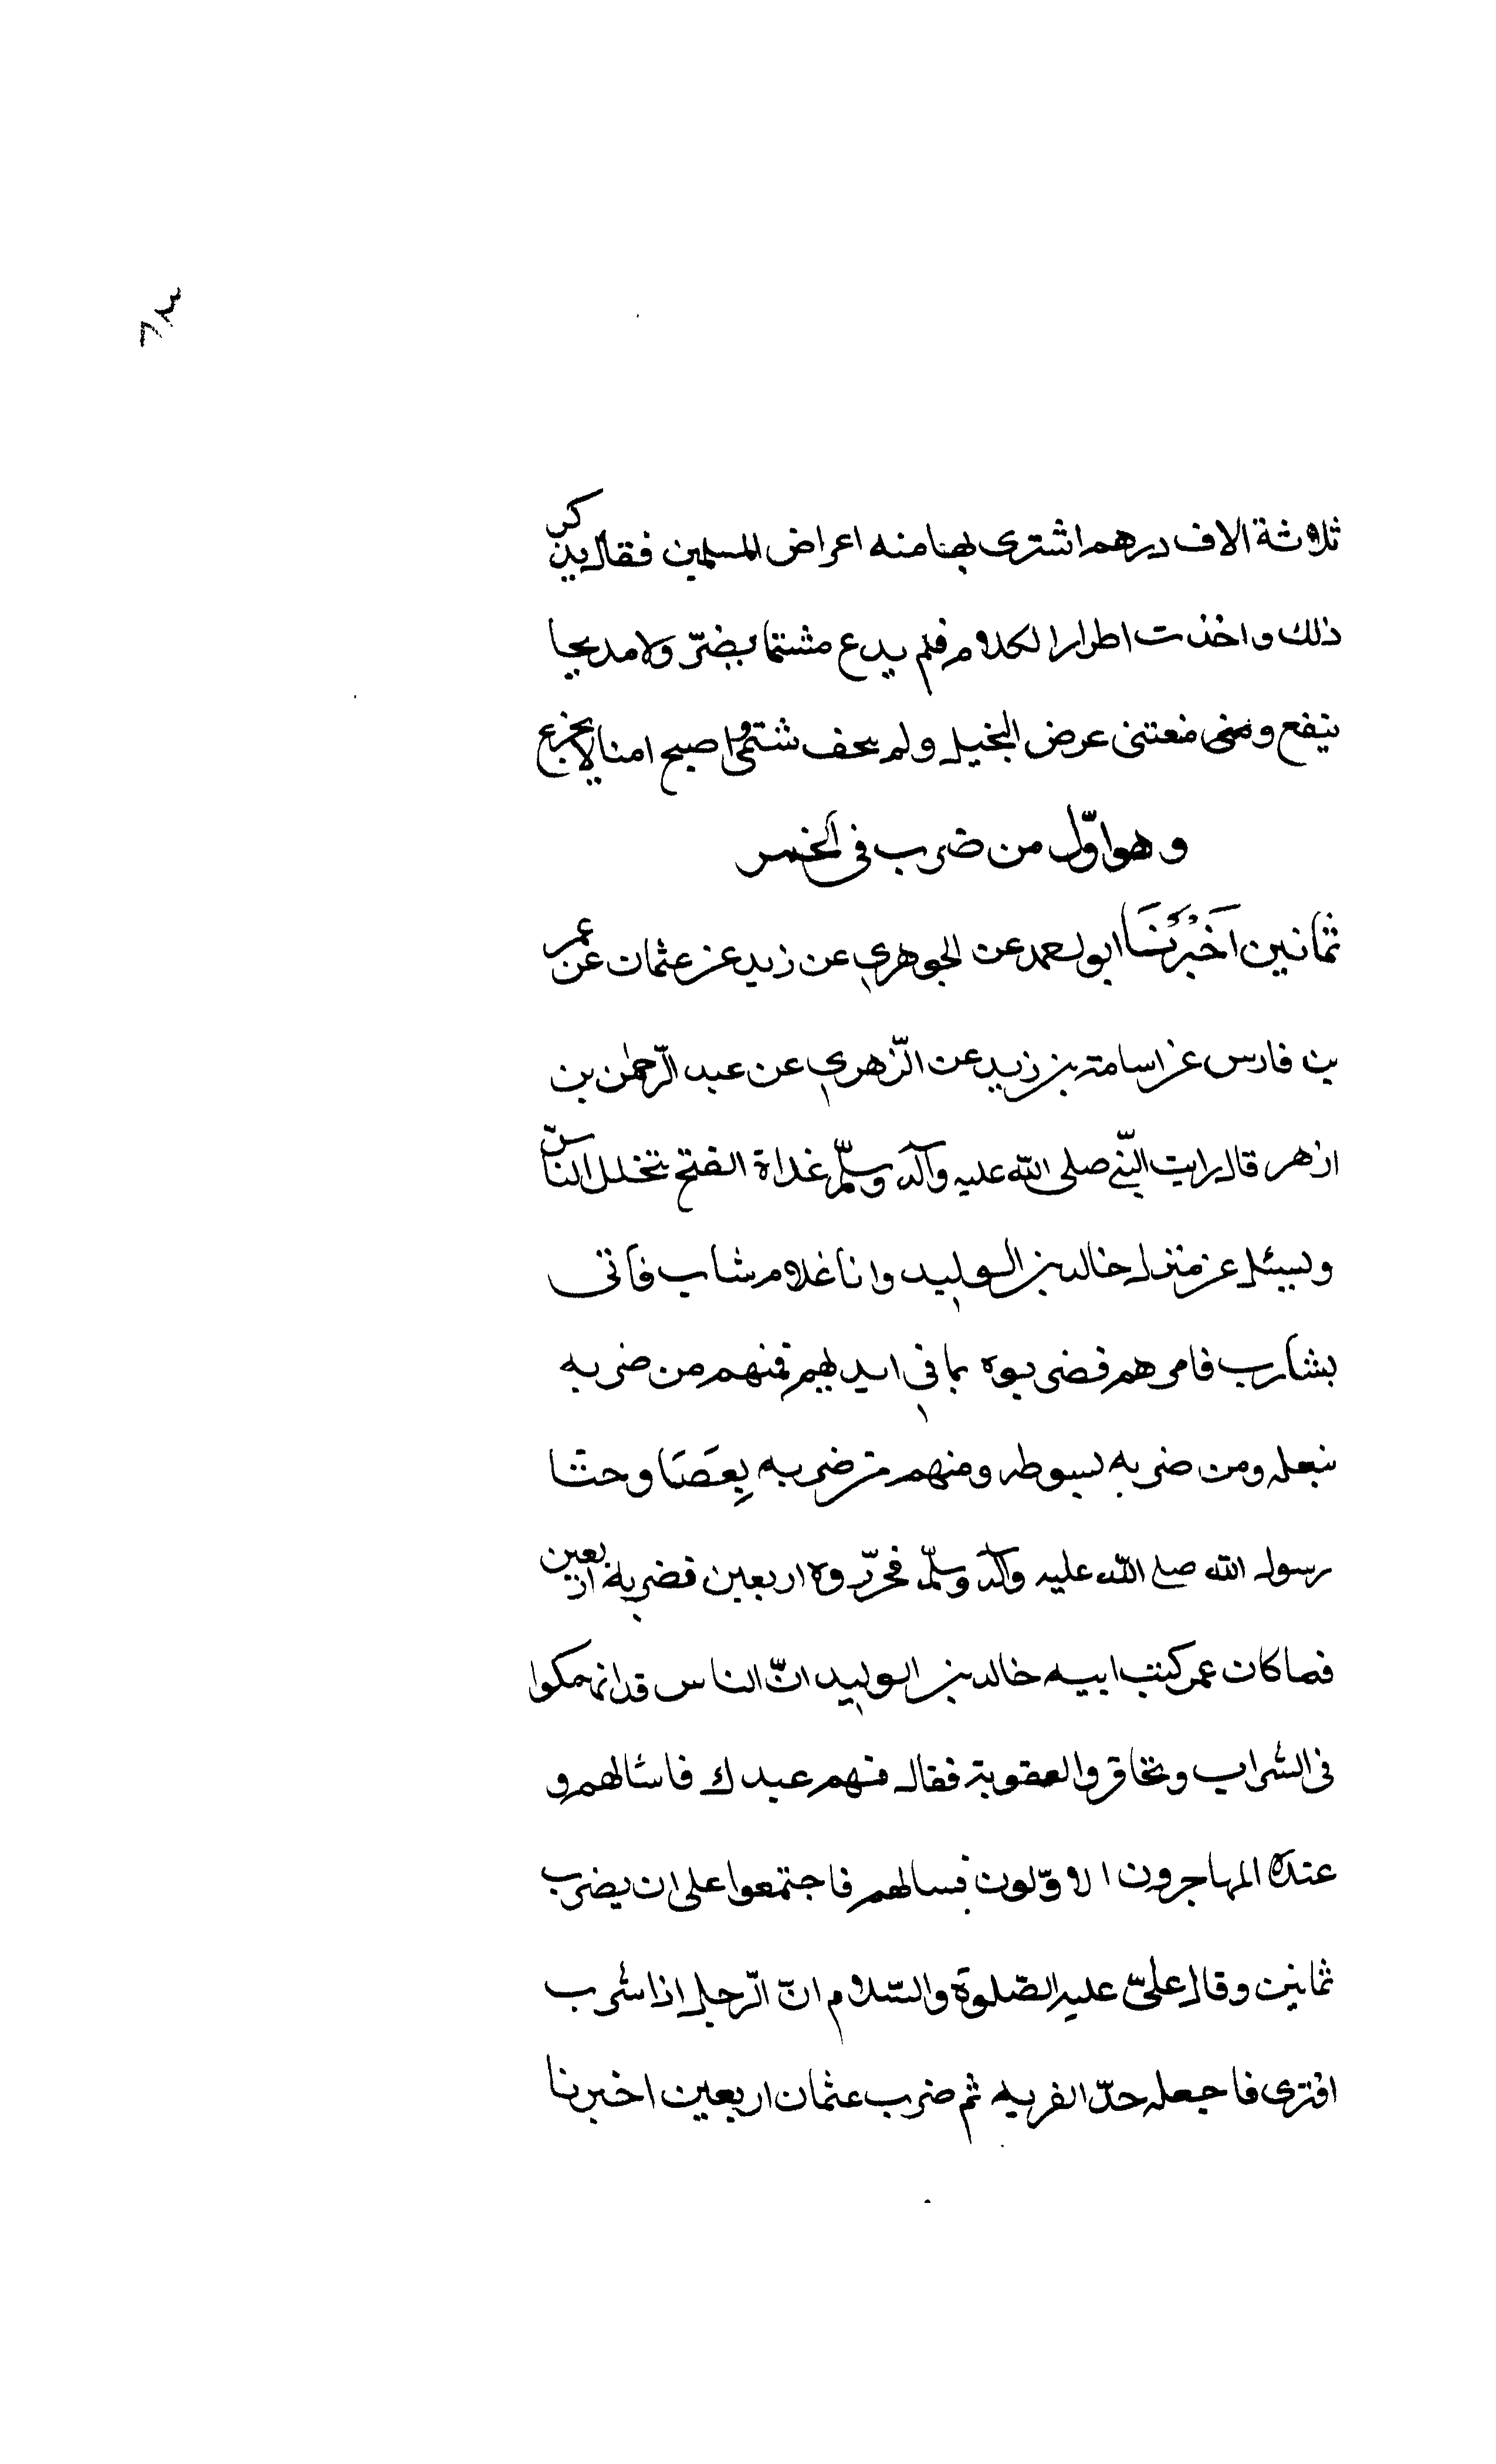 ٨٣
ثلاثة الاف درهم اشترى بها منه اعراض المسلمين فقال يذكر
ذلك واخذت اطرار الكلام فلم يدع مشتما يضرّ ولا مديحا
ينفع ومنعتنى عرض البخيل ولم يخف شتمى واصبح امنا لا يجزع
وهو اوّل من ضرب فى الخمر
ثمانين اَخْبَرَنَا ابو احمد عن الجوهري عن زيد عن عثمان عن عمر
بن فارس عن اسامة بن زيد عن الزّهري عن عبد الرّحمٰن بن
ازهر قال رايت النّبى صلى اللّه عليه وآله وسلّم غداة الفتح يتخلل الناسّ
ويسئل عن منزل خالد بن الوليد وانا غلام شاب فأتى
بشارب فامرهم فضربوه بما في ايديهم فمنهم من ضربه
بنعله ومن ضربه بسوطه ومنهم من ضربه بِعَصَا وحثا
رسول اللّه صلى اللّه عليه وآله وسلّم فحرّروه اربعين فضربه اربعين
فما كان عمر كتب ابيه خالد بن الوليد انّ الناس قد انهمكوا
فى الشراب وتحاقروا العقوبة فقال فهم عندك فاسألهم و
عنده المهاجرون الاوّلون فسالهم فاجتمعوا على ان يضرب
ثمانين وقال علىّ عليه الصّلوة والسّلام انّ الرّجل اذا شرب
افترى فاجعله حدّ الفريه ثم ضرب عثمان اربعين اخبرنا